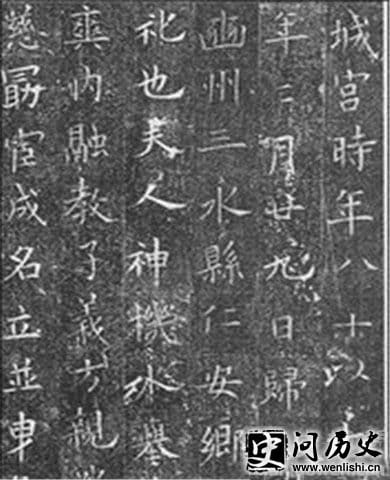 城宫時年八十
年二月廿九日歸
豳州三水縣仁安鄉
礼也夫人神機
爽内融教子義方親
慈勗宦成名立並申
史 问历史
www.wenlishi.cn